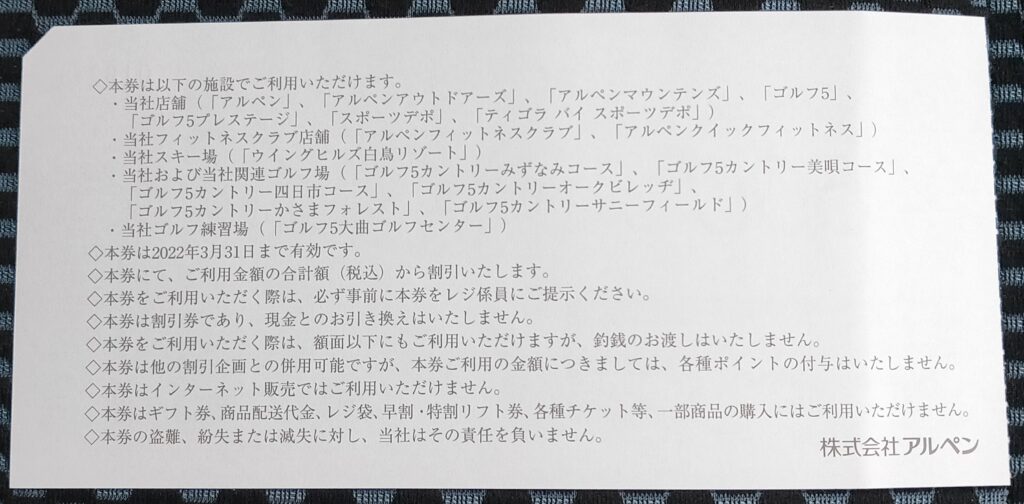 ◇本券は以下の施設でご利用いただけます。
・当社店舗（「アルペン」、「アルペンアウトドアーズ」、「アルペンマウンテンズ」、「ゴルフ5」、
「ゴルフ5プレステージ」、「スポーツデポ」、「ティゴラ バイ スポーツデポ」）
・当社フィットネスクラブ店舗（「アルペンフィットネスクラブ」、「アルペンクイックフィットネス」）
・当社スキー場（「ウイングヒルズ白鳥リゾート」）
・当社および当社関連ゴルフ場（「ゴルフ5カントリーみずなみコース」、「ゴルフ5カントリー美唄コース」、
「ゴルフ5カントリー四日市コース」、「ゴルフ5カントリーオークビレッヂ」、
「ゴルフ5カントリーかさまフォレスト」、「ゴルフ5カントリーサニーフィールド」）
・当社ゴルフ練習場（「ゴルフ5大曲ゴルフセンター」）
◇本券は2022年3月31日まで有効です。
◇本券にて、ご利用金額の合計額（税込）から割引いたします。
◇本券をご利用いただく際は、必ず事前に本券をレジ係員にご提示ください。
◇本券は割引券であり、現金とのお引き換えはいたしません。
◇本券をご利用いただく際は、額面以下にもご利用いただけますが、釣銭のお渡しはいたしません。
◇本券は他の割引企画との併用可能ですが、本券ご利用の金額につきましては、各種ポイントの付与はいたしません。
◇本券はインターネット販売ではご利用いただけません。
◇本券はギフト券、商品配送代金、レジ袋、早割・特割リフト券、各種チケット等、一部商品の購入にはご利用いただけません。
◇本券の盗難、紛失または滅失に対し、当社はその責任を負いません。
株式会社アルペン